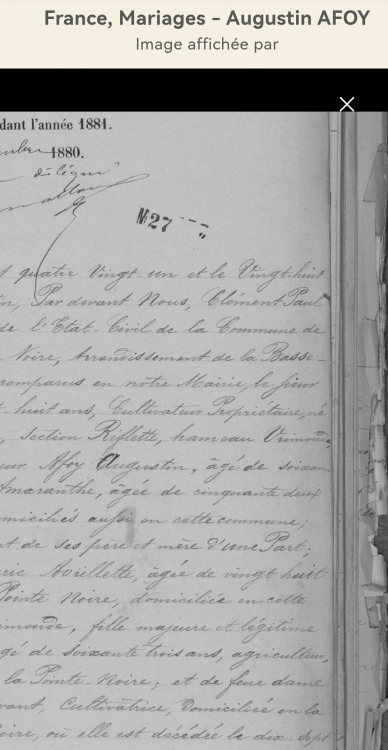 France, Mariages - Augustin AFOY
Image affichée par
dant l'année 1881.
1880.
délégué
N 27
quatre Vingt un et le Vingt-huit
Par devant Nous, Clément Paul
de l'Etat-Civil de la Commune de
Noire, Arrondissement de la Basse-
comparus en notre Mairie, le sieur
huit ans, Cultivateur Propriétaire, né
Section Riflette, hameau
eur Afoy Augustin, âgé de soixan
Amaranthe, âgée de cinquante deux
omiciliés aussi en cette commune;
nt de ses père et mère d'une Part;
ric Aviellette, âgée de vingt huit
Pointe Noire, domiciliée en cette
fille majeure et légitime
gé de soixante trois ans, agriculteur,
la Pointe-Noire; et de feue dame
vant, Cultivatrice, domiciliée en la
oire, où elle est décédée le dix-sept